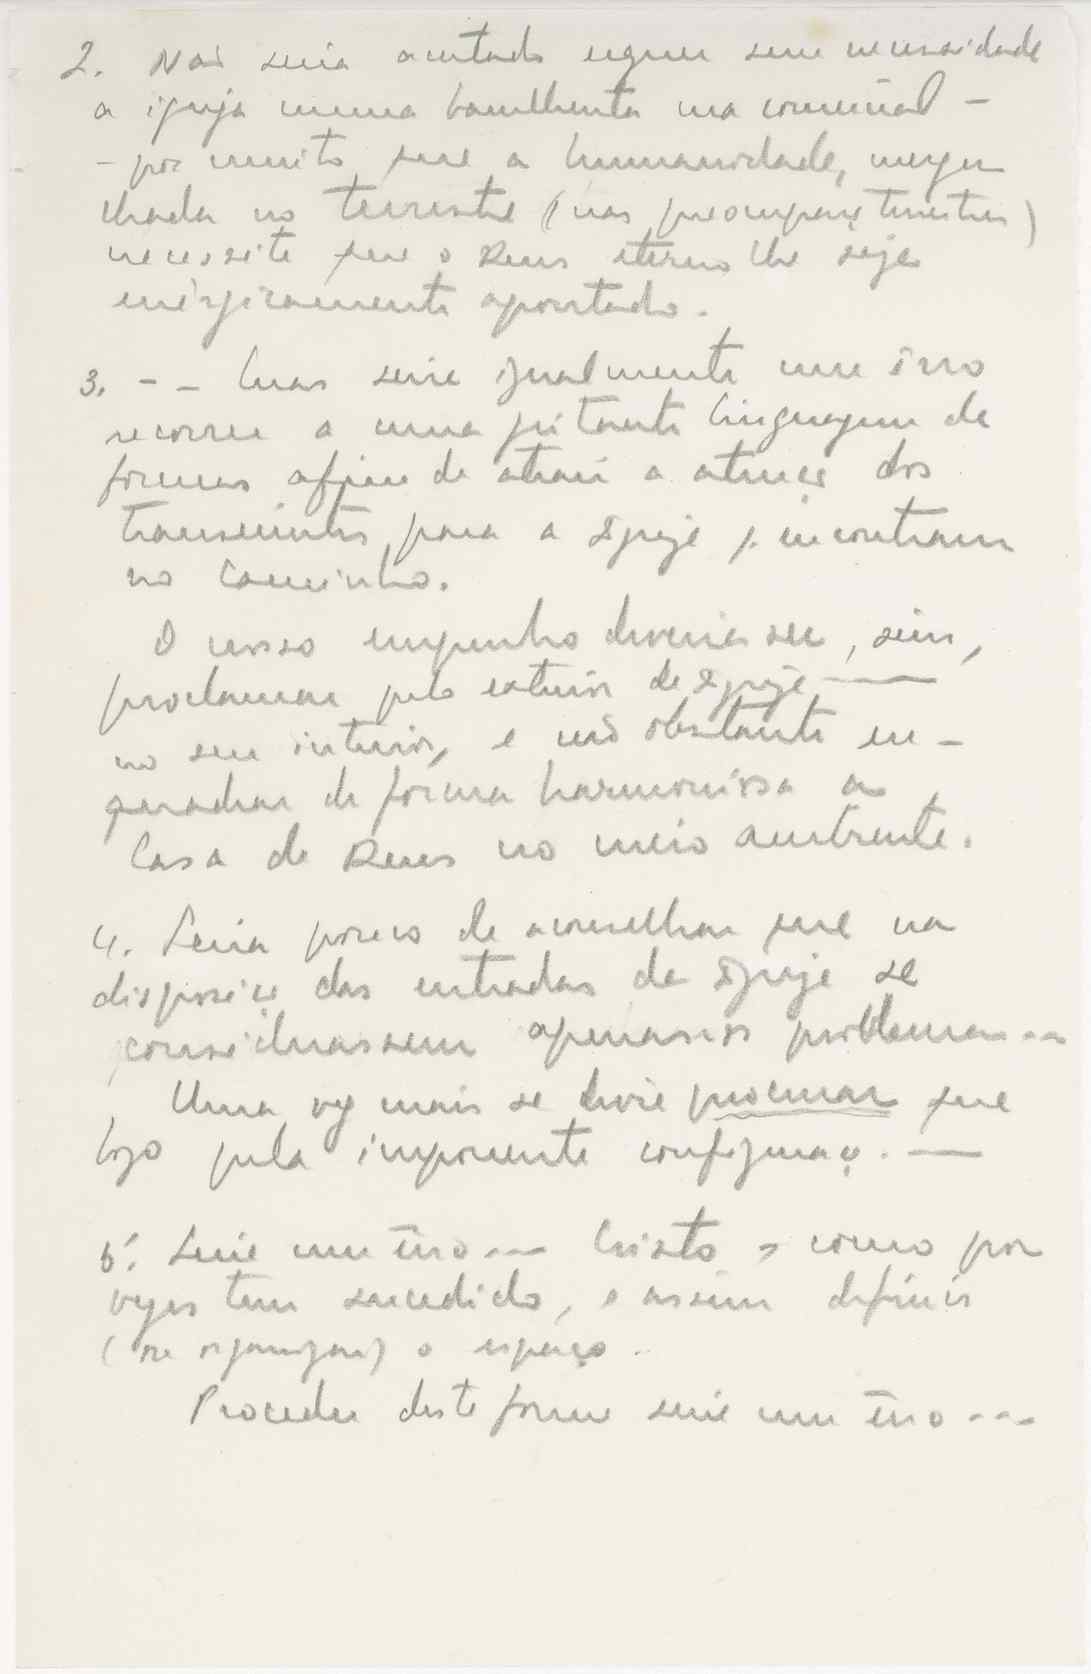 2. Não seria acertado erguer sem necessidade
a igreja numa barulhenta rua comercial –
– por muito que a humanidade, mergu
lhada no terrestre (nas preocupaç terrestres)
necessite que o Deus eterno lhe seja
enérgicamente apontado.
3. – – mas seria igualmente um êrro
recorrer a uma gritante linguagem de
formas afim de atrair a atenç dos
transeuntes para a Igreja q. encontram
no caminho.
O nosso empenho deveria ser, sim,
proclamar pelo exterior da Igreja ——
no seu interior, e não obstante en –
quadrar de forma harmoniosa a
Casa de Deus no meio ambiente.
4. Seria pouco de aconselhar que na
disposiç das entradas da Igreja se
considerassem apenas os problemas ---
Uma vez mais se devia procurar que
logo pela imponente configuraç. ——
5. Seria um êrro --- Cristo, como por
vezes tem sucedido, e assim definir
(ou organizar) o espaço.
Proceder desta forma seria um êrro ---